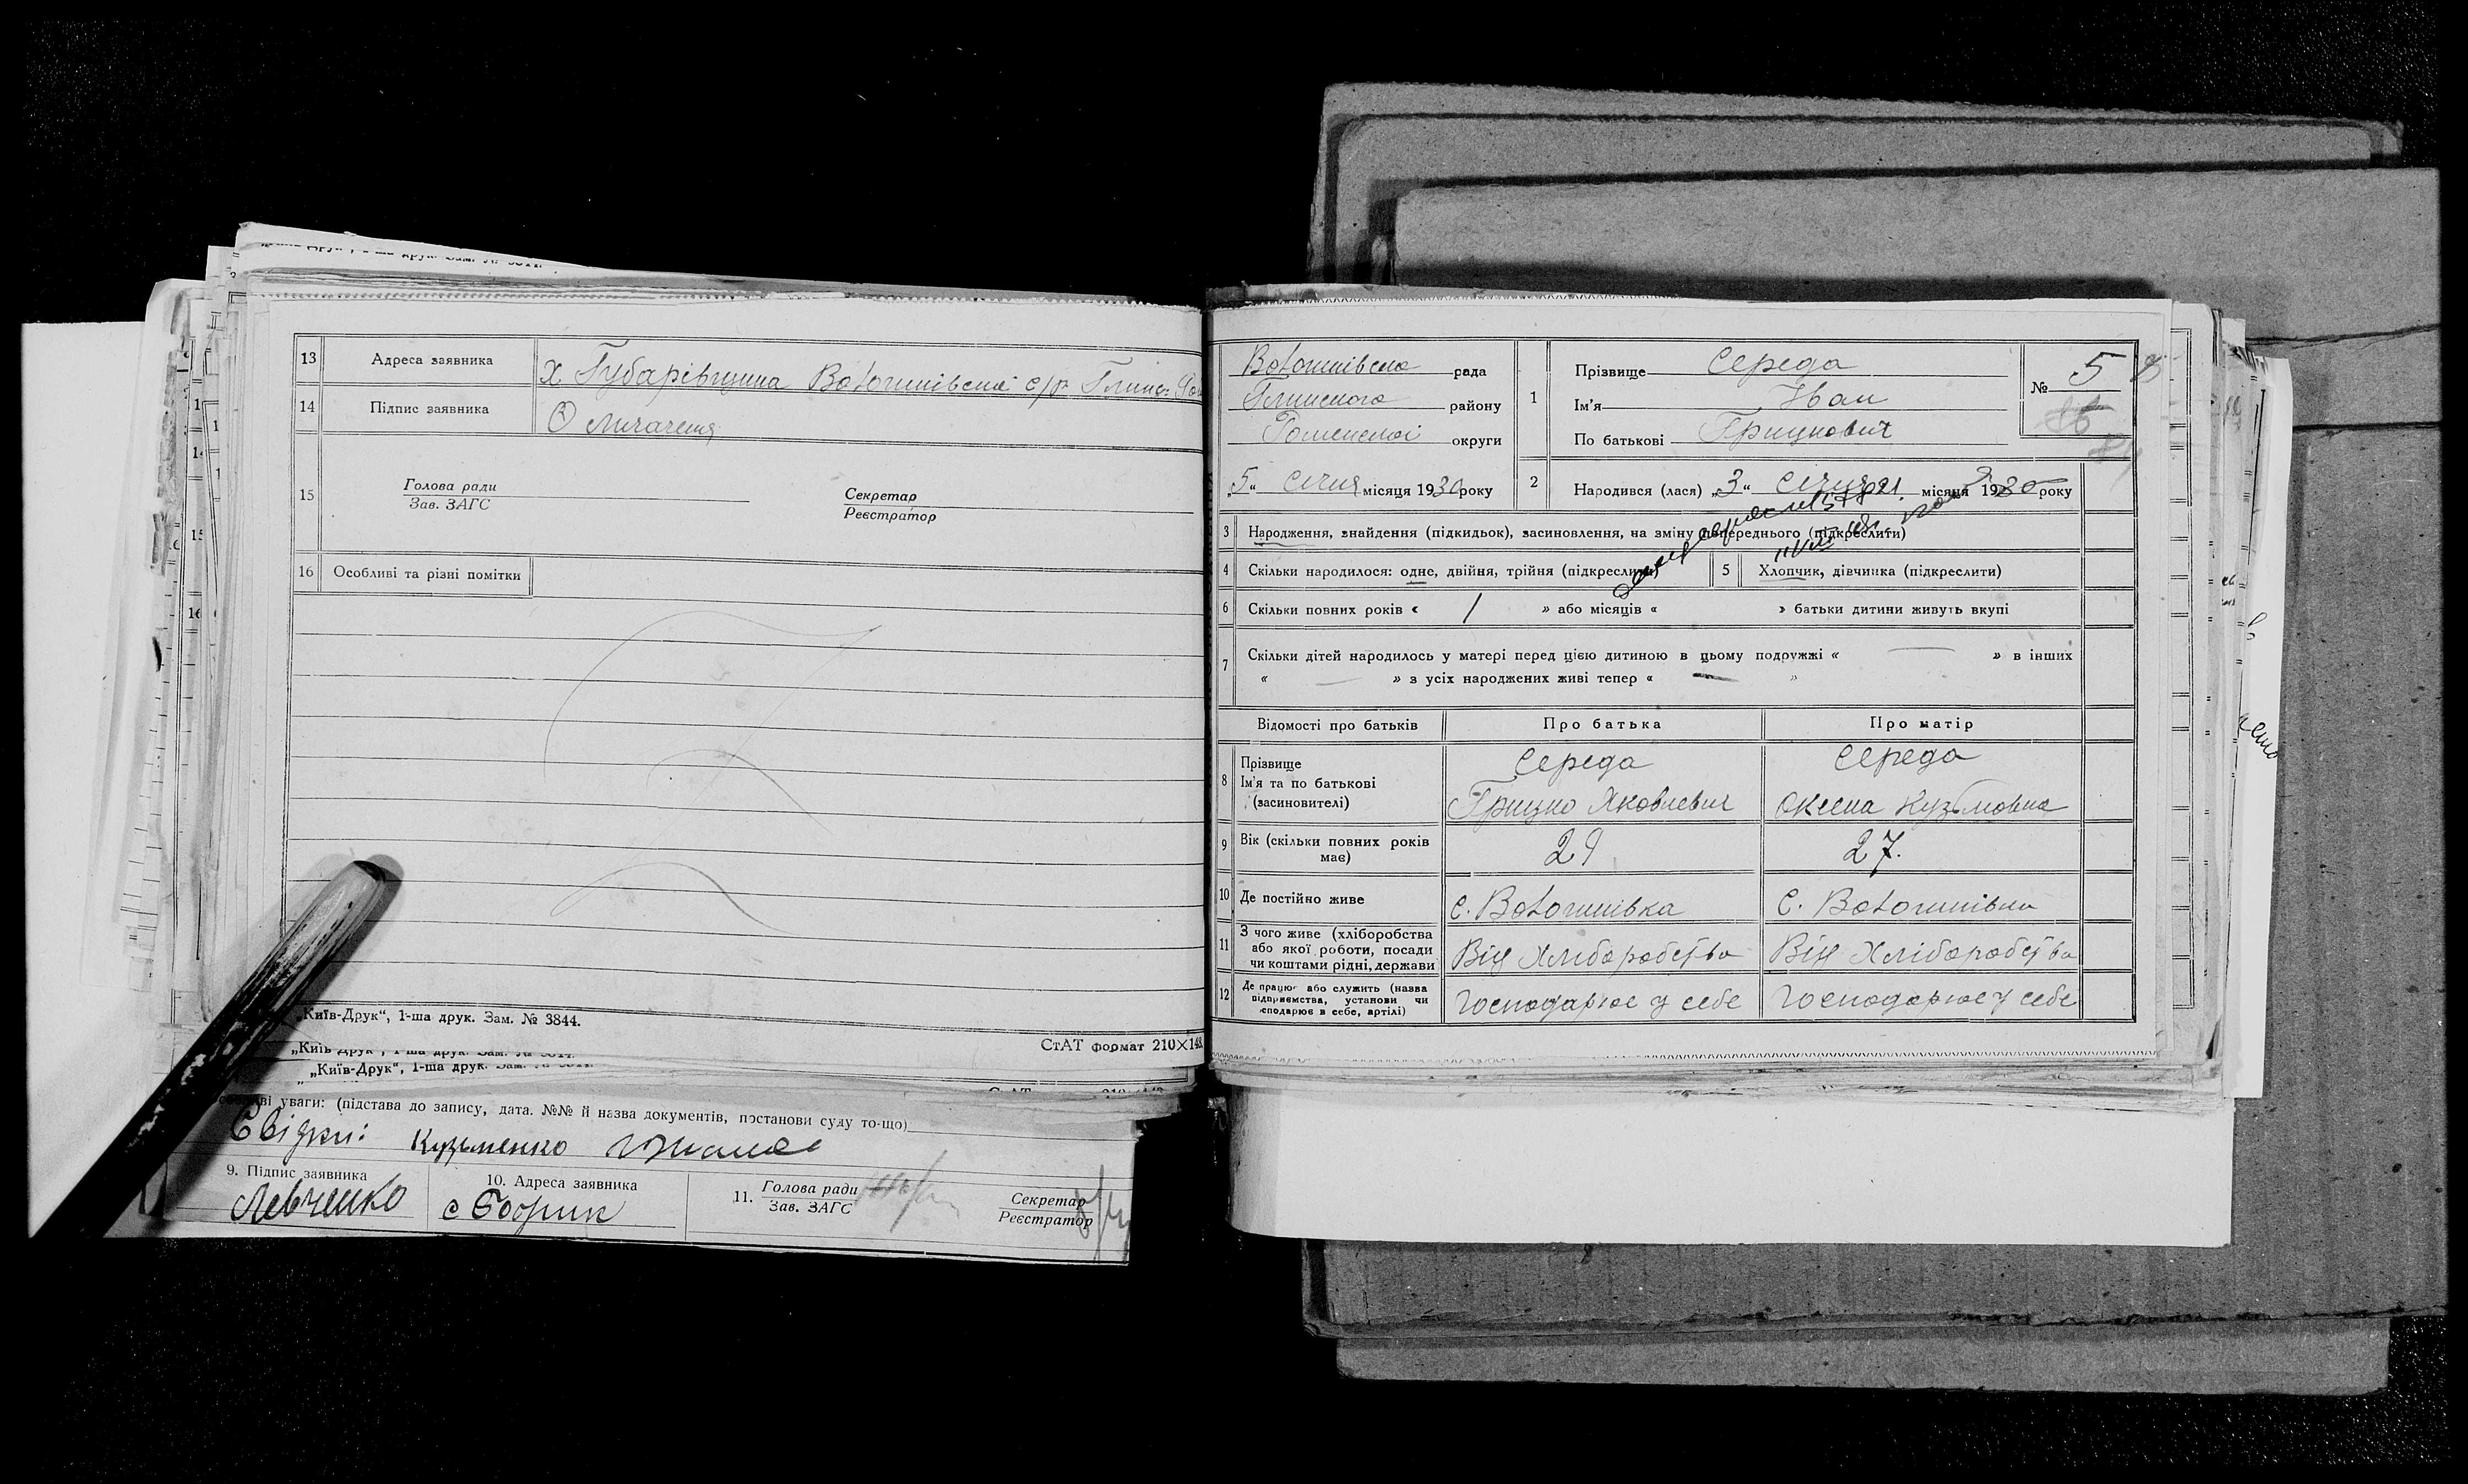 13 Адреса заявника х Губарівщина Волошнівської с/р Глинс.
14 Підпис заявника
15 Голова ради
Зав. ЗАГС
Секретар
Реєстратор
16 Особливі та різні помітки
„Київ-Друк“, 1-ша друк. Зам. № 3844.
СтАТ формат 210×148
„Київ-Друк“, 1-ша друк. Зам.
уваги: (підстава до запису, дата. №№ й назва документів, постанови суду то-що)
Свідки: Кузьменко
9. Підпис заявника
Левченко
10. Адреса заявника
11. Голова ради
Зав. ЗАГС
Секретар
Реєстратор
Волошнівська рада
Глинського району
Роменської округи
„5“ Січня місяця 1930 року
1 Прізвище Середа
Ім'я Иван
По батькові Грицкович
№ 5
2 Народився (лася) „3“ Січня місяця 1930 року
3 Народження, знайдення (підкидьок), засиновлення, на зміну попереднього (підкреслити)
4 Скільки народилося: одне, двійня, трійня (підкреслити)
5 Хлопчик, дівчинка (підкреслити)
6 Скільки повних років « / » або місяців « » батьки дитини живуть вкупі
7 Скільки дітей народилось у матері перед цією дитиною в цьому подружжі « — » в інших
« — » з усіх народжених живі тепер « — »
Відомості про батьків Про батька Про матір
8 Прізвище Ім'я та по батькові (засиновителі)
Середа Середа
Грицко Яковлевич Оксена Кузьмовна
9 Вік (скільки повних років має) 29 27.
10 Де постійно живе с. Волошнівка с. Волошнівка
11 З чого живе (хліборобства або якої роботи, посади чи коштами рідні, держави Від Хліборобства Від Хліборобства
12 Де працює або служить (назва підприємства, установи чи господарює в себе, артілі) Господарює у себе Господарює у себе